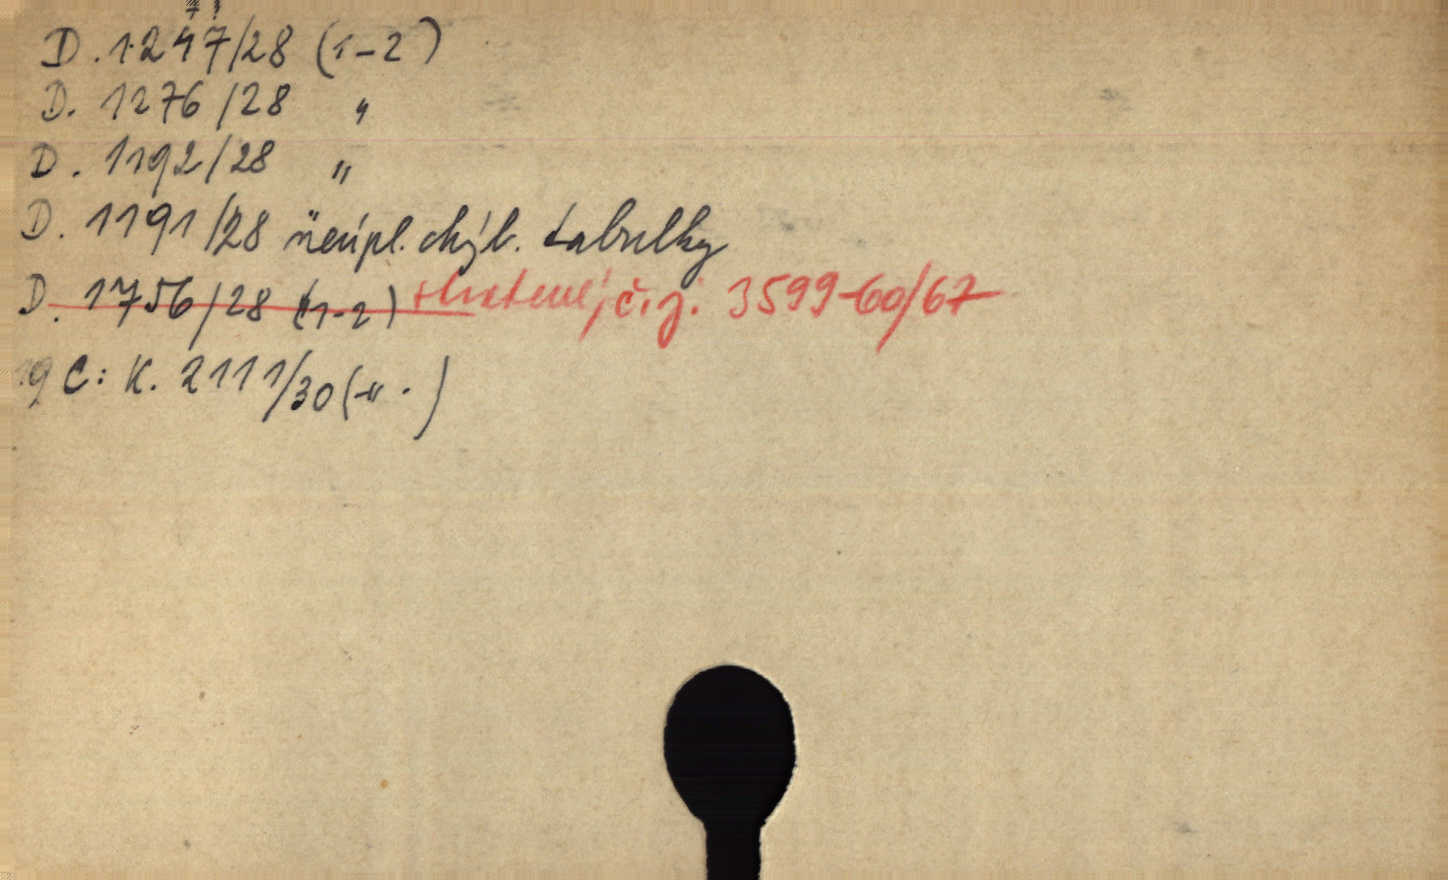 D. 1247/28 (1-2)
D. 1276/28 "
D. 1192/28 "
D. 1191/28 neúpl. chýb. tabulky
D. 1756/28 (1-2) stratené, č.j. 3599-60/67
19 C: K. 2111/30 (-"-)